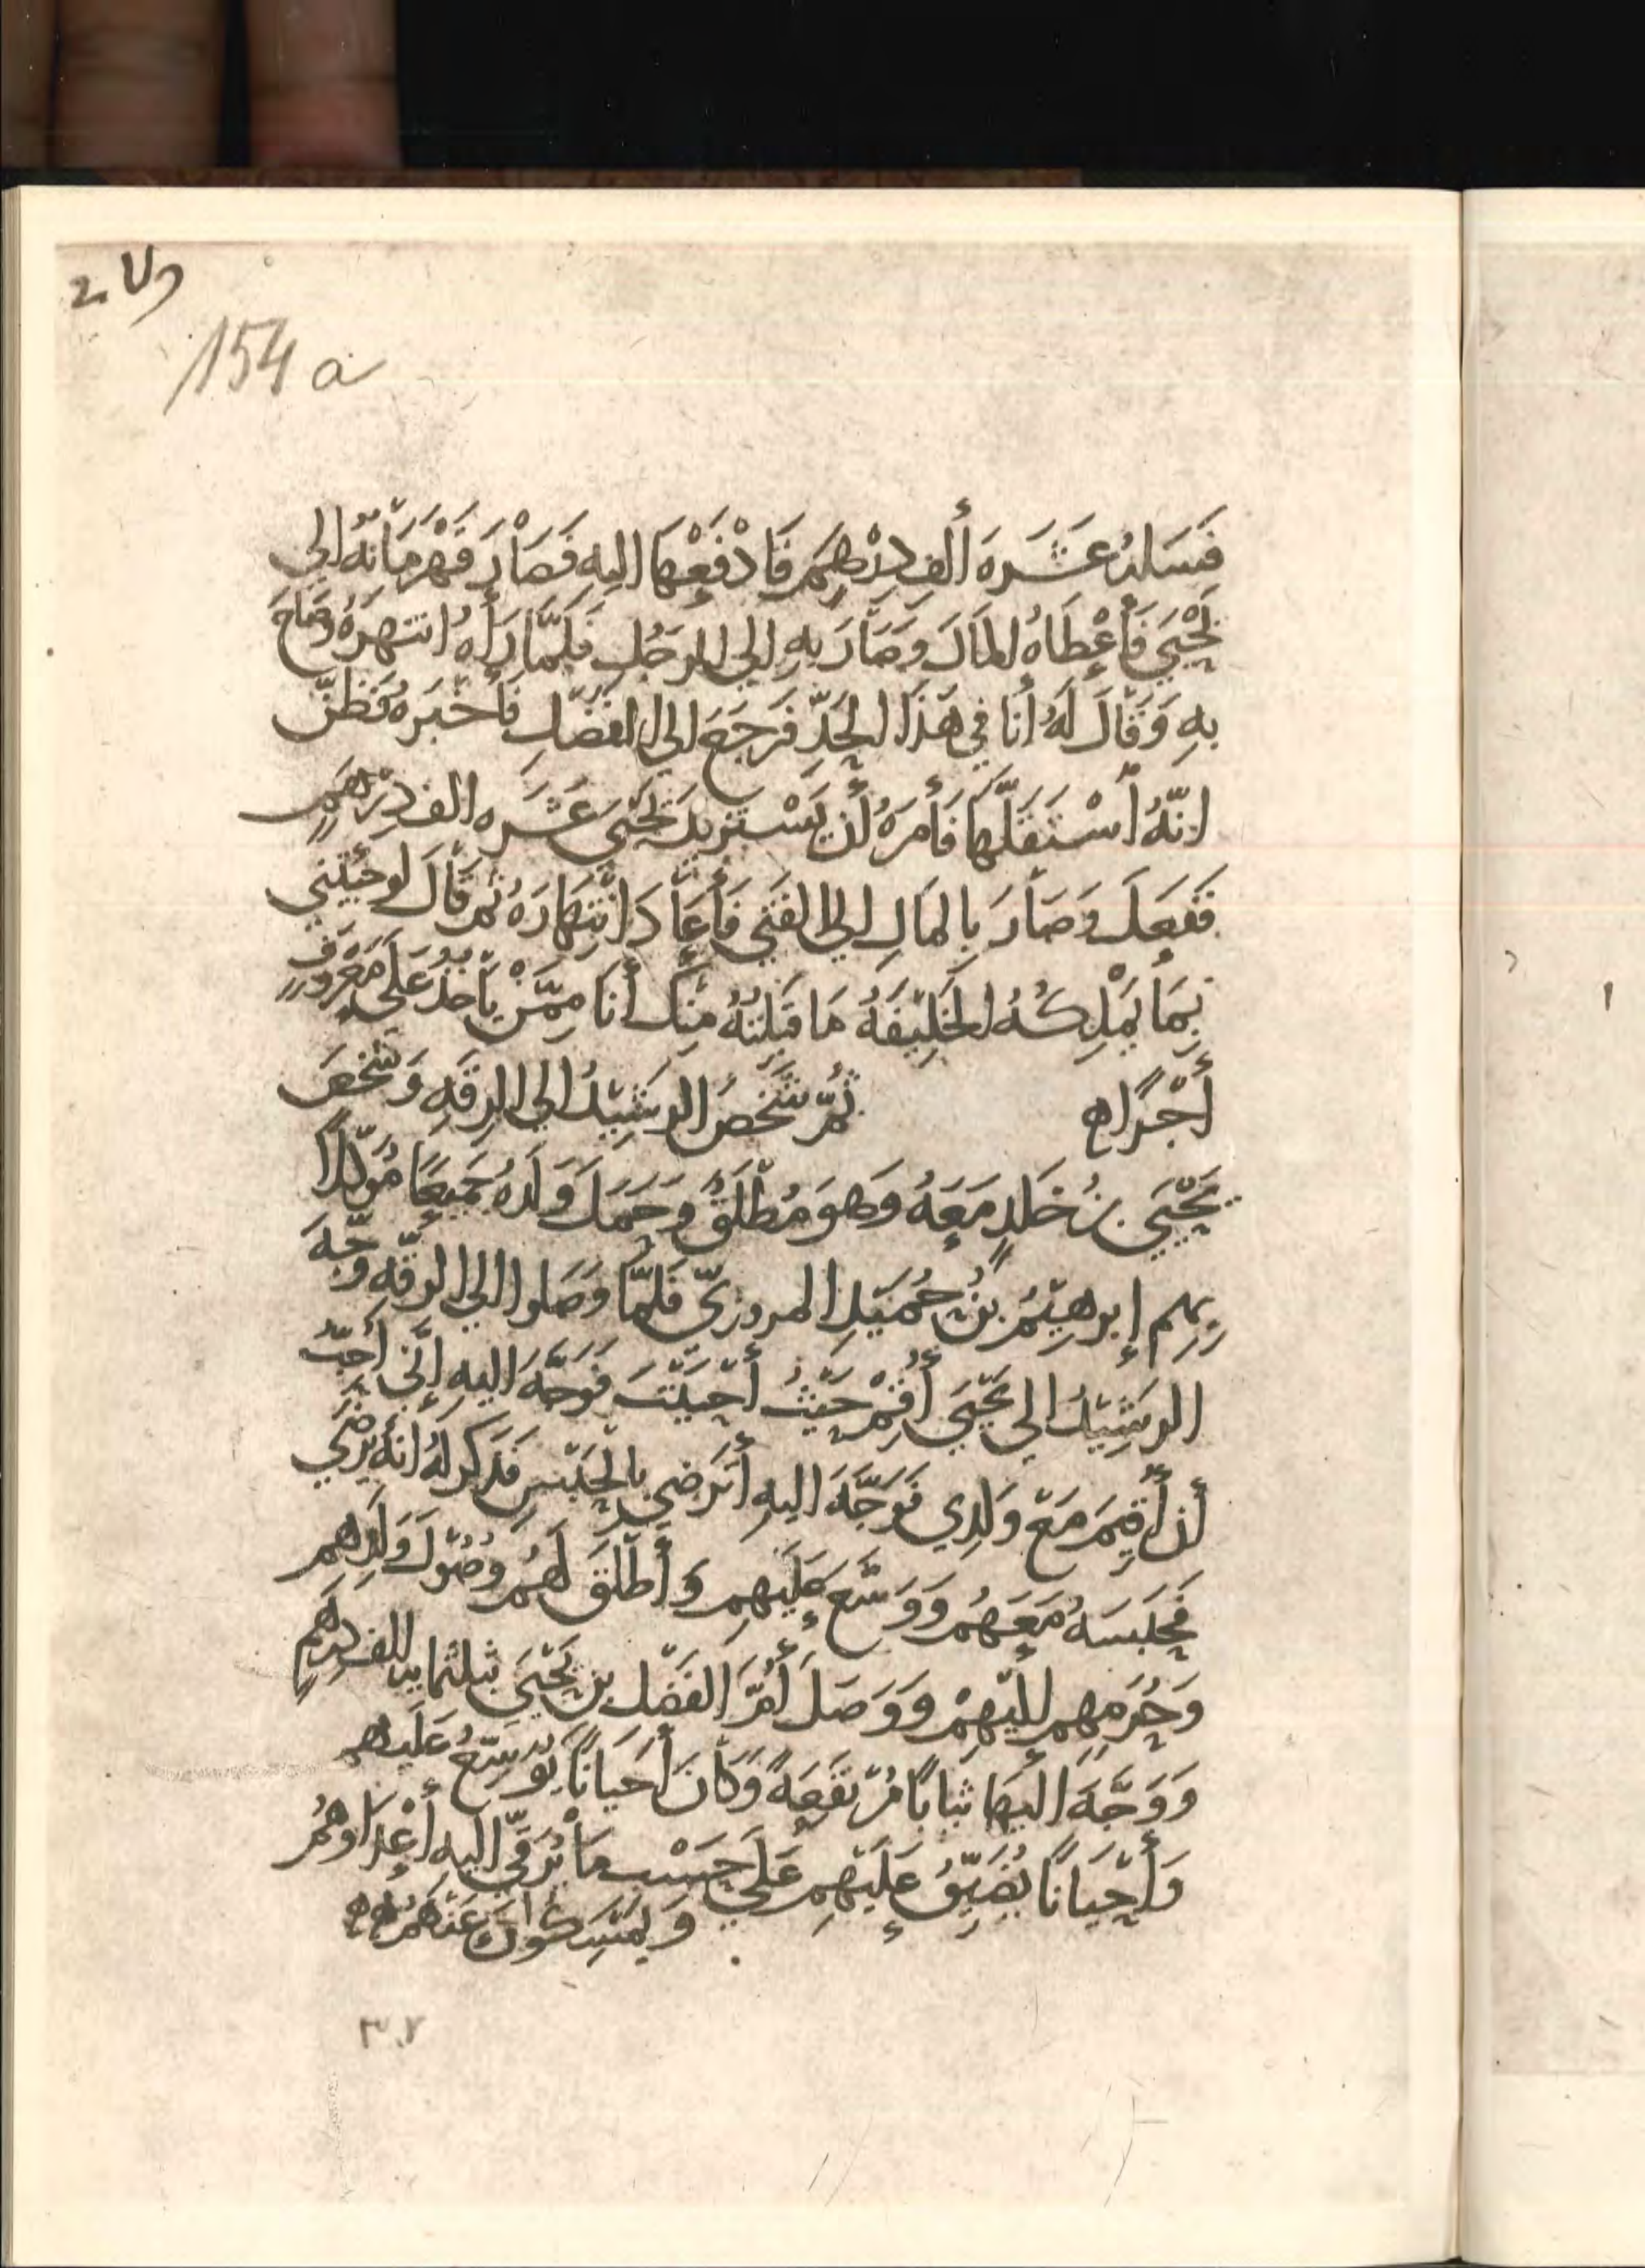 154 a
فَسَلهُ عَشَرَة أَلف دِرْهِمَ فَادْفَعْهَا اليهِ فَصَارَ قَهْرَمَانهُ الي
يَحْيَي فَأَعْطَاهُ المَالَ وَصَارَ بِهِ الي الرجُلِ فَلَمَّا رَأهُ انتهرَهُ وصَاحَ
بِهِ وَقَالَ لَهُ أنا في هَذَا الحَدِّ فَرَجَعَ الي الفَضْلِ فَأخْبَرهُ فَظنّ
انّهُ أسْتَقَلَّهَا فَأَمرَهُ أن يَسْتزيدَ يَحْيَي عَشَره الف دِرْهَمٍ
فَفَعِلَ وَصَارَ بِالمَالِ الي الفَتَي فَأَعَادَ انْتِهَارَهُ ثُم قَالَ لو جيتني
بِمَا يَمْلِكُهُ الخَلِيْفَهُ مَا قَبِلتُهُ مِنكَ أنَا مِمَّنْ يَأخُذُ عَلَي مَعْرُوفٍ
أَجْرًا ه ثُمّ شَخَصُ الرشِيْدُ الي الرقَهِ وَشَخَصَ
يَحْيَي بنُ خَلدٍ مَعَهُ وَهوَ مُطْلَقٌ وَحَمَلَ وَلَدهُ جَمِيعًا مُوَكلاً
بِهِم إبرهِيْمُ بنُ حُمَيْدٍ المروزيّ فَلَمَّا وَصَلوا الي الرقّه وَجّهَ
الرشِيْدُ الي يَحْيَي أقِمْ حَيْثُ أحْبَبْتَ فَوَجَّهَ اليهِ إنّي أُحبّ
أن أُقِيمَ مَعَ وَلَدِي فَوَجَّهَ اليهِ أتَرضي بالحَبْسِ فَذكر لهُ انهُ يَرْضَي
فَحَبَسَهُ مَعَهُم وَوَسَّعَ عَلَيهِم وَأطْلَقَ لَهُم وصُوْلَ وَلَدِهم
وَحُرَمِهِم اليْهِمْ وَوَصَلَ أمَّ الفَضْل بن يَحْيَي بثلثمايه الف دِرهَمٍ
وَوَجَّهَ اليهَا ثيابًا مُرْتَفعَهً وَكَانَ أحيَانًا يُوَسِّعُ عَلَيهم
وَأحْيَانًا يُضَيِّقُ عَلَيْهِم عَلَي حَسْبِ مَا يُرَقّي اليهِ أعْدَاؤهُم
وَيمْسِكُونَ عَنْهُم ه
٣٠٧